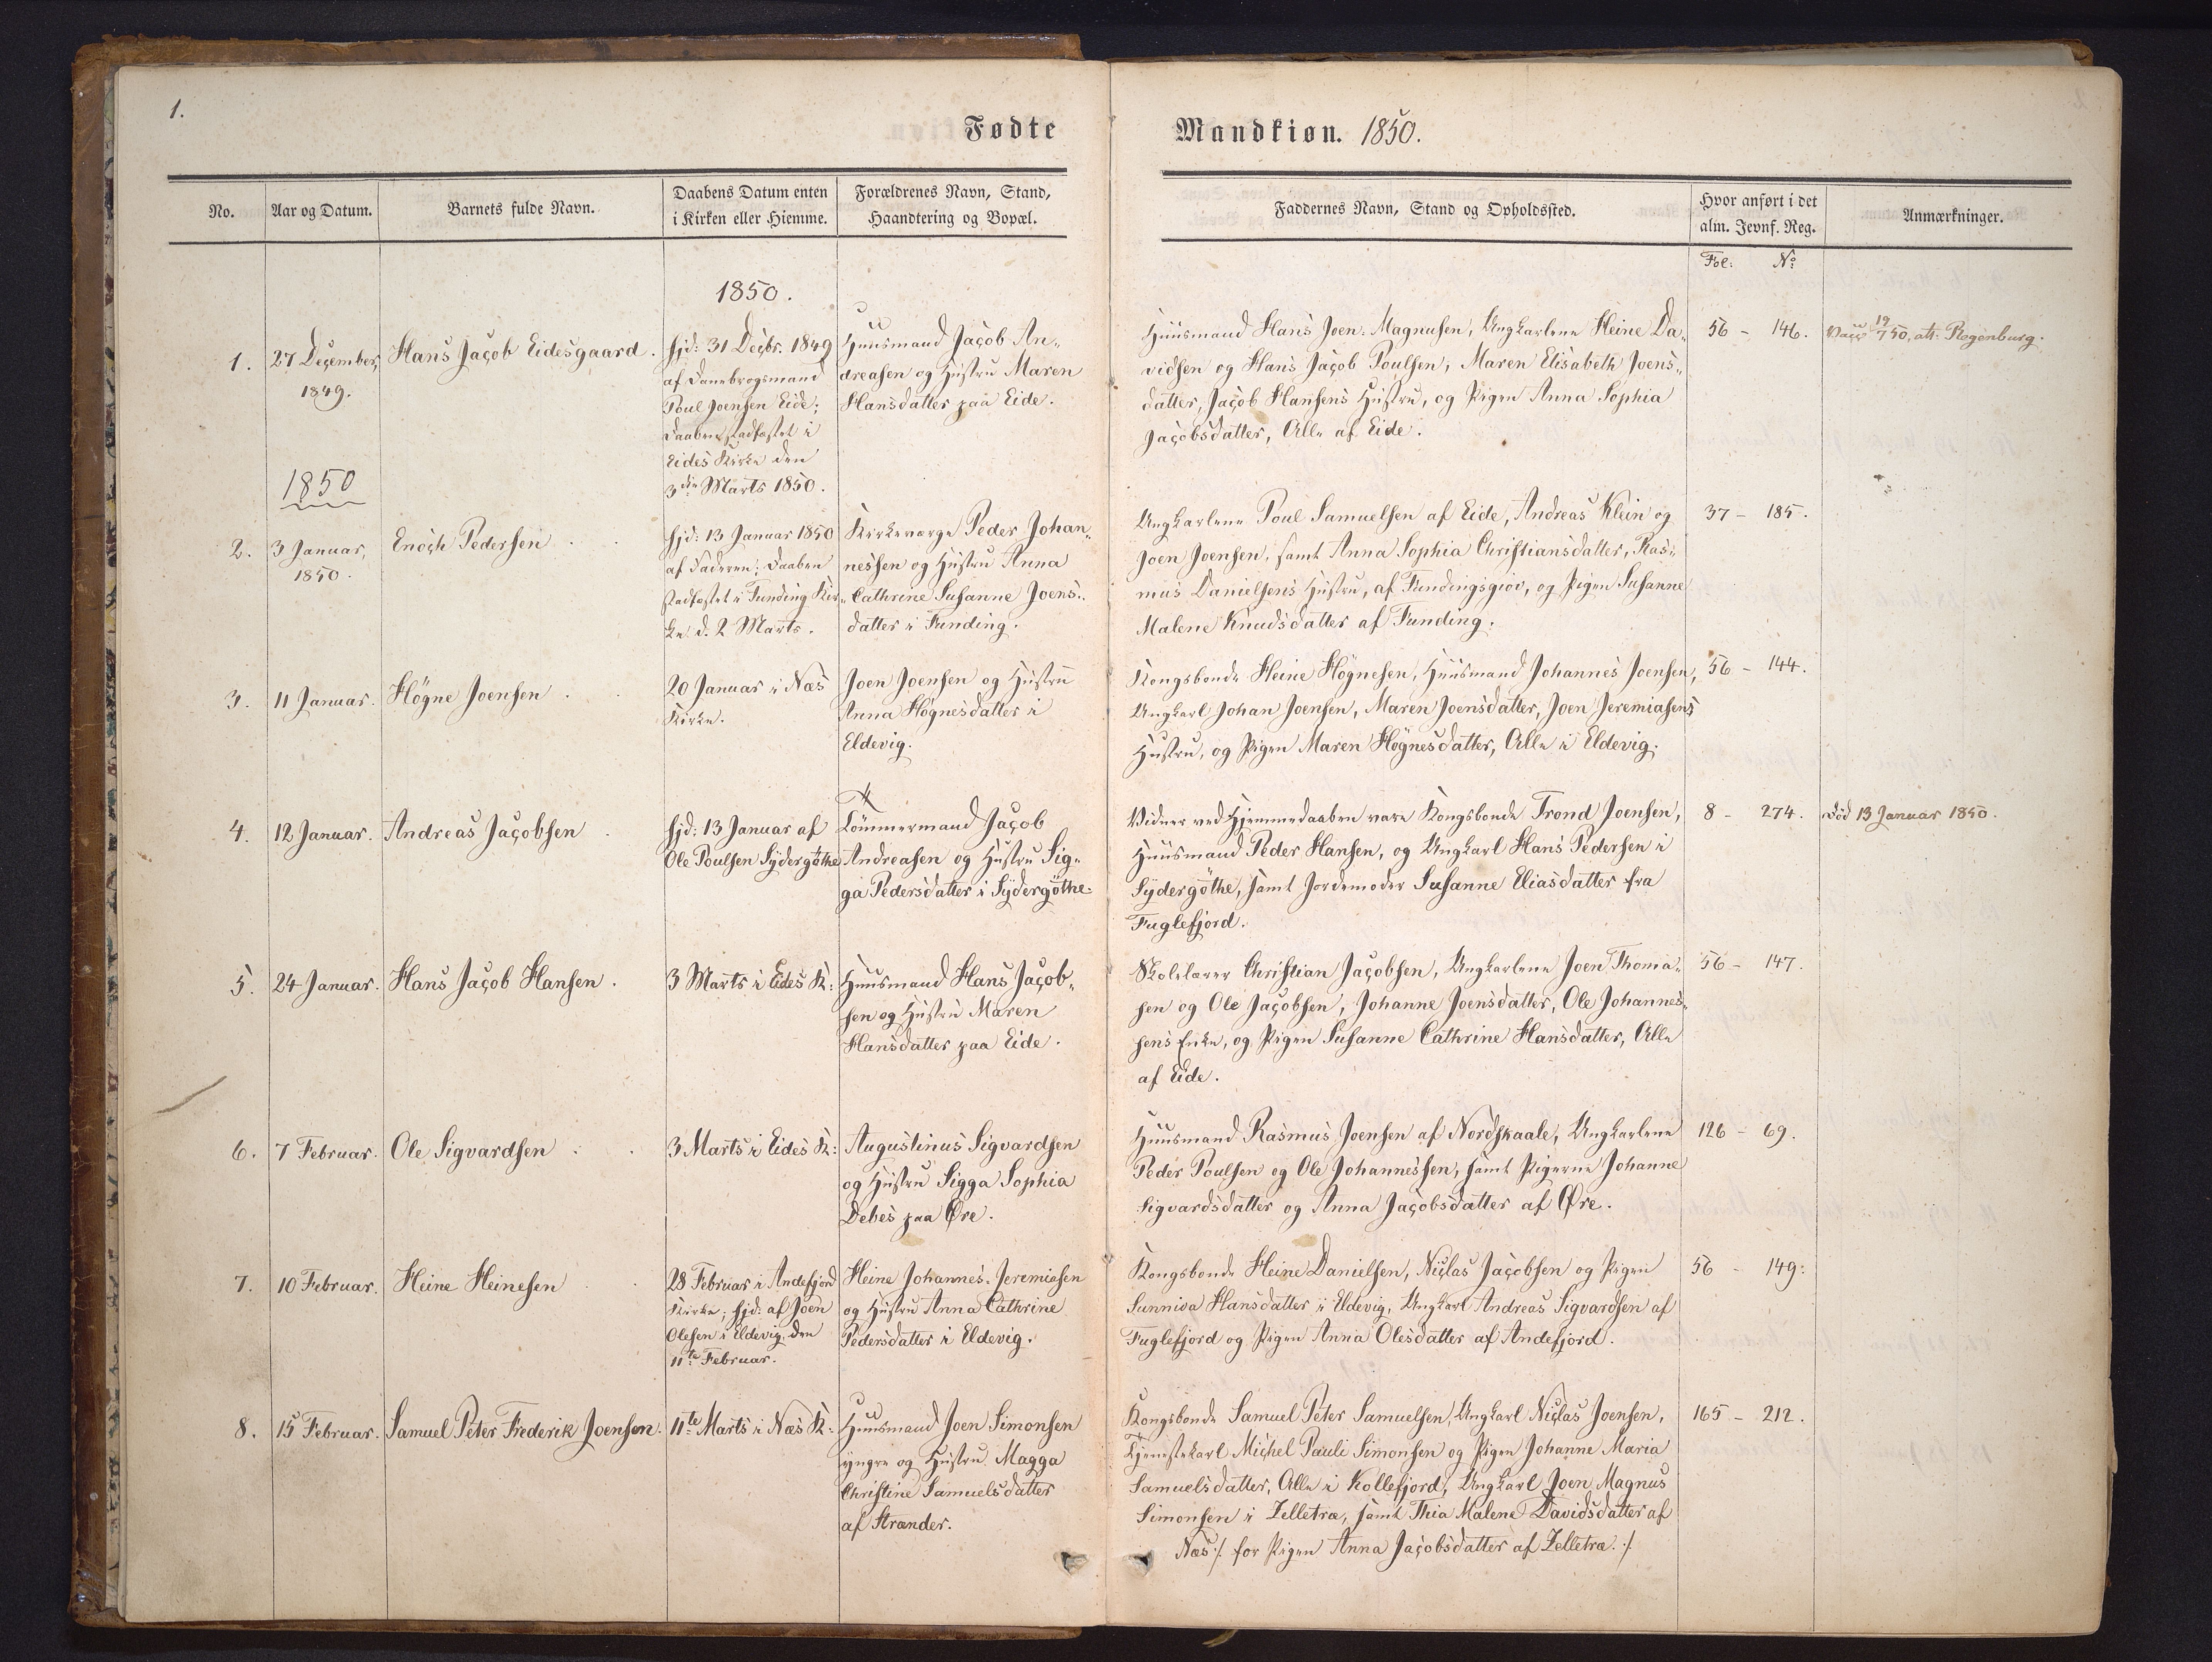 1.
Fødte
Mandkiøn. 1850.
No.
Aar og Datum.
Barnets fulde Navn.
Daabens Datum enten
i Kirken eller Hiemme.
Forældrenes Navn, Stand,
Haandtering og Bopæl.
Faddernes Navn, Stand og Opholdssted.
Hvor anført i det
alm. Jevnf. Reg.
Anmærkninger.
Fol: No
1850.
1.
27 December,
1849.
Hans Jacob Eidesgaard.
hjd: 31 Decbr. 1849
af Dannebrogsmand
Poul Joensen Eide;
Daaben stadfæstet i
Eides Kirke den
3die Marts 1850.
Huusmand Jacob An-
dreasen og Hustru Maren
Hansdatter paa Eide.
Huusmand Hans Joen: Magnusen, Ungkarlene Heine Da-
vidsen og Hans Jacob Poulsen, Maren Elisabeth Joens-
datter, Jacob Hansens Hustru, og Pigen Anna Sophia
Jacobsdatter, Alle af Eide.
56 - 146.
Vacc 19/7 50, att: Regenburg.
1850
2.
3 Januar,
1850.
Enoch Pedersen
hjd: 13 Januar 1850
af Faderen; Daaben
stadfæstet i Funding Kir-
ke d. 2 Marts.
Kirkeværge Peder Johan-
nessen og Hustru Anna
Cathrine Susanne Joens-
datter i Funding.
Ungkarlene Poul Samuelsen af Eide, Andreas Klein og
Joen Joensen, samt Anna Sophia Christiansdatter, Ras-
mus Danielsens Hustru, af Fundingsgiov, og Pigen Susanne
Malene Knudsdatter af Funding.
37 - 185.
3.
11 Januar.
Högne Joensen
20 Januar i Næs
Kirke.
Joen Joensen og Hustru
Anna Högnesdatter i
Eldevig.
Kongsbonde Heine Högnesen, Huusmand Johannes Joensen,
Ungkarl Johan Joensen, Maren Joensdatter, Joen Jeremiasens
Hustru, og Pigen Maren Högnesdatter, Alle i Eldevig.
56 - 144.
4.
12 Januar.
Andreas Jacobsen
hjd: 13 Januar af
Ole Poulsen Sydergöthe
Tömmermand Jacob
Andreasen og Hustru Sig-
ga Pedersdatter i Sydergöthe.
Vidner ved Hjemmedaaben vare Kongsbonde Trond Joensen,
Huusmand Peder Hansen, og Ungkarl Hans Pedersen i
Sydergöthe, samt Jordemoder Susanne Eliasdatter fra
Fuglefjord.
8 - 274.
Död 13 Januar 1850.
5.
24 Januar.
Hans Jacob Hansen.
3 Marts i Eides K:
Huusmand Hans Jacob-
sen og Hustru Maren
Hansdatter paa Eide.
Skolelærer Christian Jacobsen, Ungkarlene Joen Thoma-
sen og Ole Jacobsen, Johanne Joensdatter, Ole Johannes-
sens Enke, og Pigen Susanne Cathrine Hansdatter, Alle
af Eide.
56 - 147.
6.
7 Februar.
Ole Sigvardsen
3 Marts i Eides K:
Augustinus Sigvardsen
og Hustru Sigga Sophia
Debes paa Øre.
Huusmand Rasmus Joensen af Nordskaale, Ungkarlene
Peder Poulsen og Ole Johannessen, samt Pigerne Johanne
Sigvardsdatter og Anna Jacobsdatter af Øre.
126 - 69.
7.
10 Februar.
Heine Heinesen
28 Februar i Andefjord
Kirke; hjd: af Joen
Olesen i Eldevig, den
11te Februar.
Heine Johannes. Jeremiasen
og Hustru Anna Cathrine
Pedersdatter i Eldevig.
Kongsbonde Heine Danielsen, Niclas Jacobsen og Pigen
Sunniva Hansdatter i Eldevig, Ungkarl Andreas Sigvardsen af
Fuglefjord og Pigen Anna Olesdatter af Andefjord.
56 - 149.
8.
15 Februar.
Samuel Peter Frederik Joensen.
11te Marts i Næs K:
Huusmand Joen Simonsen
yngre og Hustru Magga
Christine Samuelsdatter
af Strænder.
Kongsbonde Samuel Peter Samuelsen, Ungkarl Niclas Joensen,
Tjenestekarl Michel Pauli Simonsen og Pigen Johanne Maria
Samuelsdatter, Alle i Kollefjord, Ungkarl Joen Magnus
Simonsen i Zelletræ, samt Thia Malene Davidsdatter af
Næs /: for Pigen Anna Jacobsdatter af Zelletræ. :/
165 - 212.